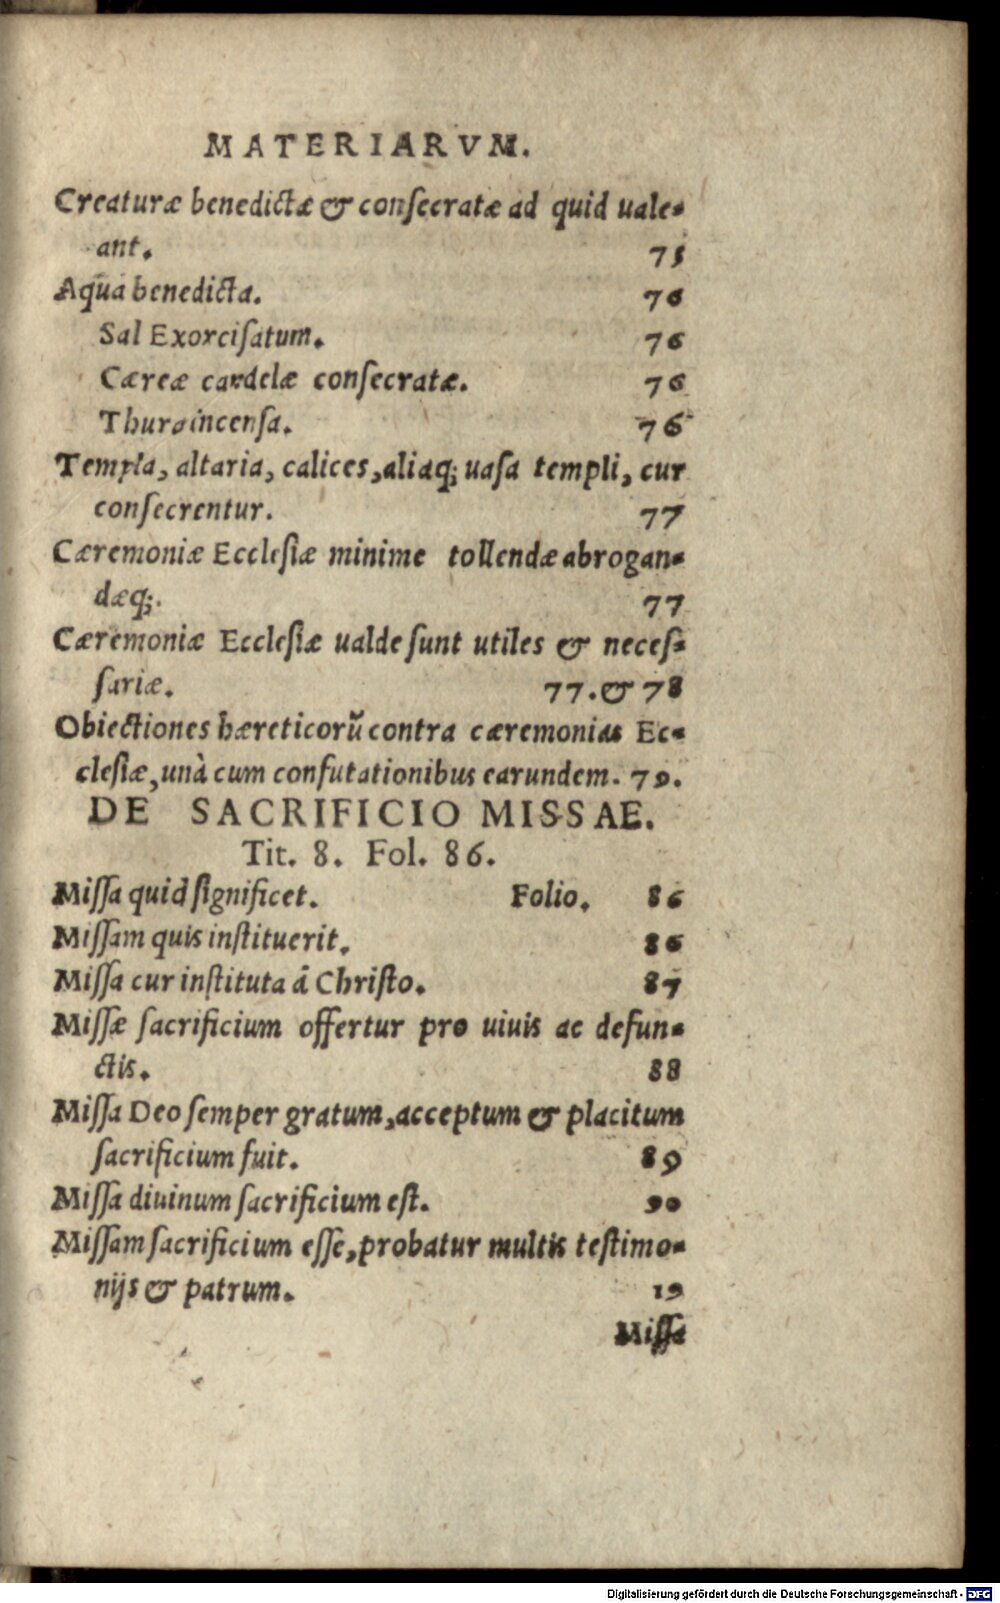 MATERIARVM.
Creaturæ benedictæ & conſecratæ ad quid uale-
ant. 75
Aqua benedicta. 76
Sal Exorciſatum. 76
Cæreæ candelæ conſecratæ. 76
Thura incenſa. 76
Templa, altaria, calices, aliaq; uaſa templi, cur
conſecrentur. 77
Cæremoniæ Eccleſiæ minime tollendæ abrogan-
dæq;. 77
Cæremoniæ Eccleſiæ ualde ſunt utiles & neceſ-
ſariæ. 77. & 78
Obiectiones hæreticorũ contra cæremonias Ec-
cleſiæ, unà cum confutationibus earundem. 79.
DE SACRIFICIO MISSAE.
Tit. 8. Fol. 86.
Miſſa quid ſignificet. Folio. 86
Miſſam quis inſtituerit. 86
Miſſa cur inſtituta à Chriſto. 87
Miſſæ ſacrificium offertur pro uiuis ac defun-
ctis. 88
Miſſa Deo ſemper gratum, acceptum & placitum
ſacrificium fuit. 89
Miſſa diuinum ſacrificium eſt. 90
Miſſam ſacrificium eſſe, probatur multis teſtimo-
nijs & patrum. 19
Miſſa
Digitalisierung gefördert durch die Deutsche Forschungsgemeinschaft - DFG